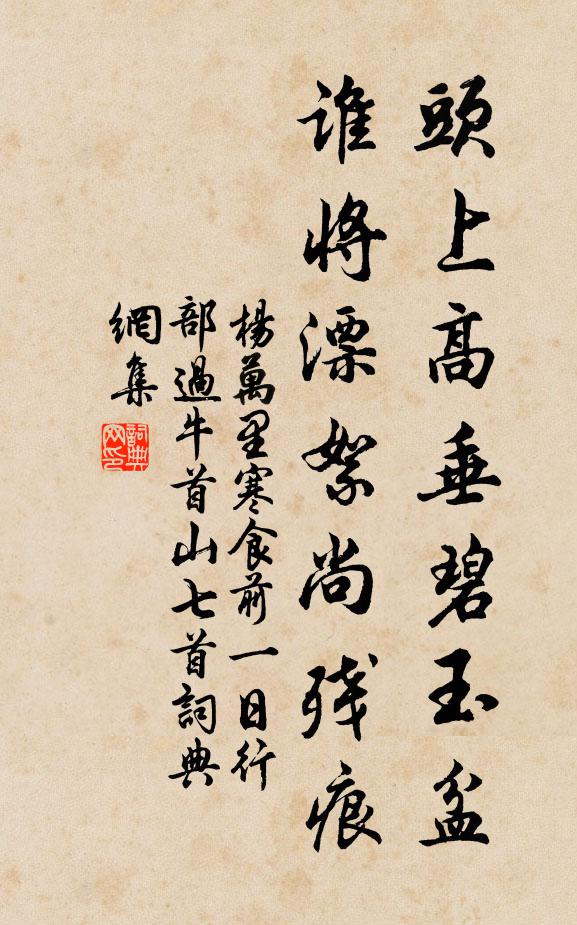 頭上高垂碧玉盆
誰將漂絮尚殘痕
楊萬里寒食前一日行
部過牛首山七首詞典
網集
詞典
网印